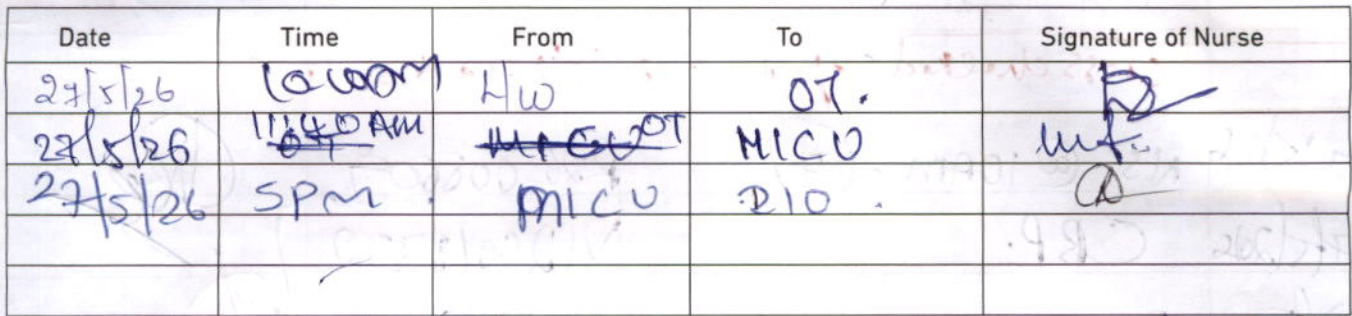 Date Time From To Signature of Nurse
27/5/26 10:00AM H/W OT.
27/5/26 11:40AM OT MICU
27/5/26 5PM MICU 210.